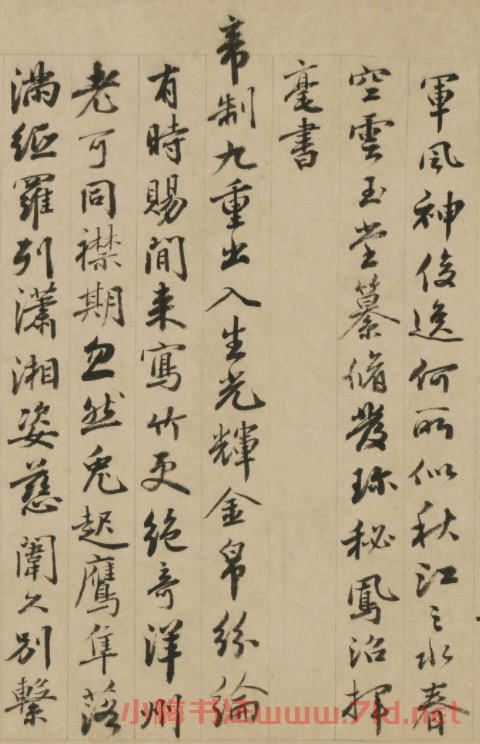 軍風神俊逸何所似秋江之水春
空雲玉堂纂脩發珎秘鳳沼揮
毫書
帝制九重出入生光輝金帛紛綸
有時賜閒来寫竹更絶竒洋州
老可同襟期忽然兔起鷹隼落
滿絍羅列瀟湘姿慈闈久別繫
小梅书法www.7ld.net